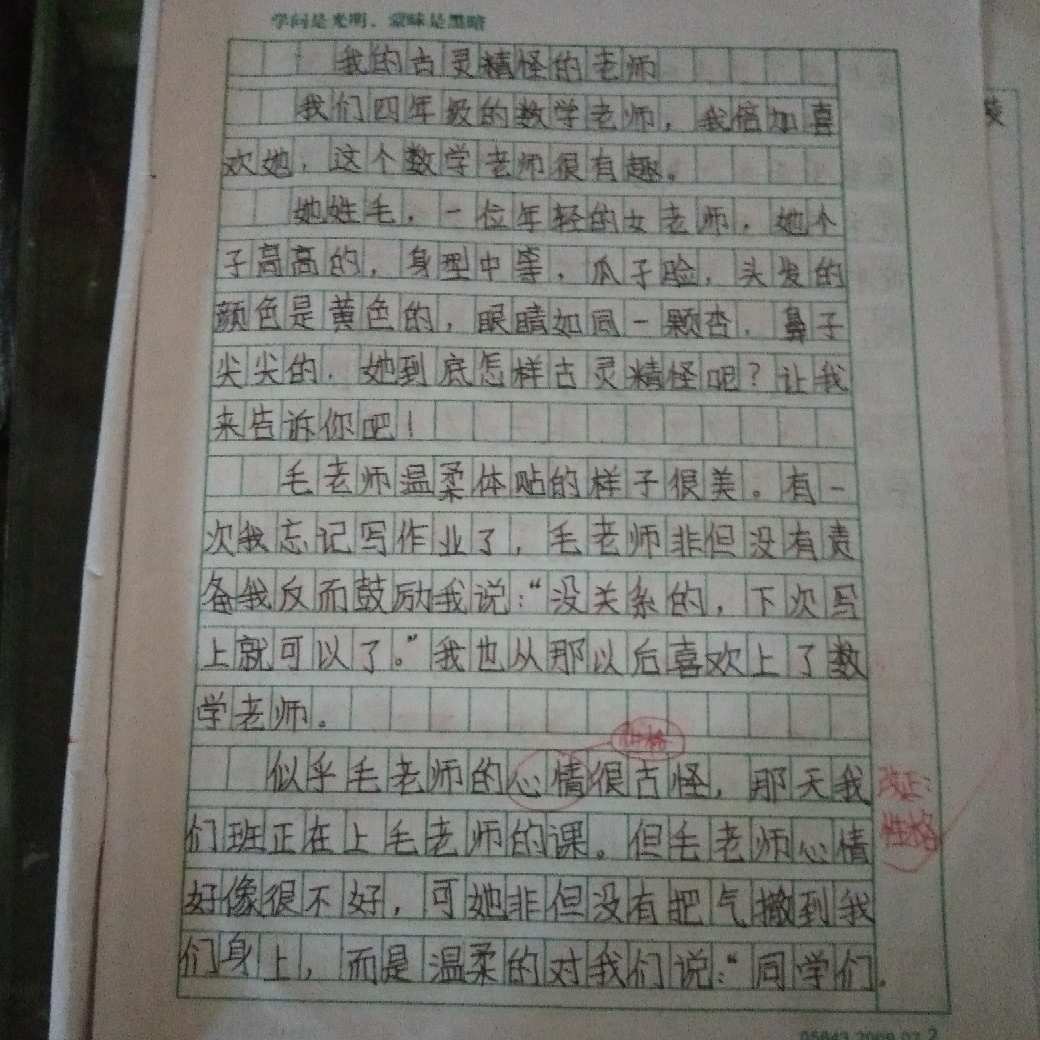 学问是光明，蒙昧是黑暗
我的古灵精怪的老师
我们四年级的数学老师，我倍加喜
欢她，这个数学老师很有趣。
她姓毛，一位年轻的女老师，她个
子高高的，身型中等，瓜子脸，头发的
颜色是黄色的，眼睛如同一颗杏，鼻子
尖尖的．她到底怎样古灵精怪呢？让我
来告诉你吧！
毛老师温柔体贴的样子很美。有一
次我忘记写作业了，毛老师非但没有责
备我反而鼓励我说：“没关系的，下次写
上就可以了。”我也从那以后喜欢上了数
学老师。
性格
似乎毛老师的心情很古怪，那天我
改正：
们班正在上毛老师的课。但毛老师心情
性格
好像很不好，可她非但没有把气撒到我
们身上，而是温柔的对我们说：“同学们．
05943·2009·02 2